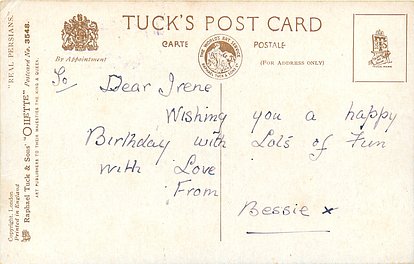 TUCK'S POST CARD
CARTE POSTALE
By Appointment
(FOR ADDRESS ONLY)
To Dear Irene
Wishing you a happy
Birthday with Lots of Fun
with Love
From
Bessie x
"REAL PERSIANS."
Raphael Tuck & Sons' "OILETTE" Postcard No. 3548.
ART PUBLISHERS TO THEIR MAJESTIES THE KING & QUEEN.
Printed in England
Copyright. London